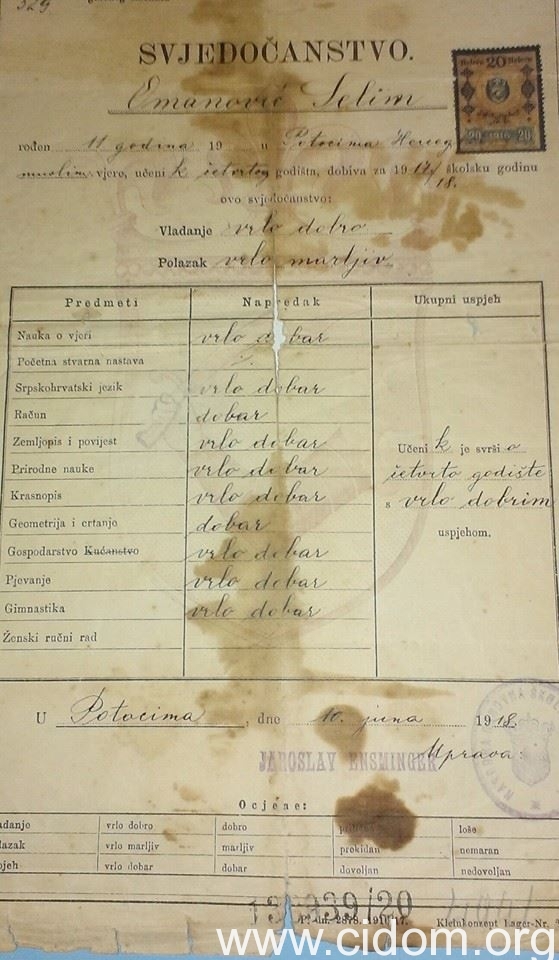 329
SVJEDOČANSTVO.
Emanović Selim
Helera 20 Helera
20 1916 20
rođen 11 godina 19 u Potocima Herceg
muslim. vjere, učeni k četvrtog godišta, dobiva za 1917/18. školsku godinu
ovo svjedočanstvo:
Vladanje vrlo dobro
Polazak vrlo marljiv
Predmeti Napredak Ukupni uspjeh
Nauka o vjeri vrlo dobar
Početna stvarna nastava
Srpskohrvatski jezik vrlo dobar
Račun dobar
Zemljopis i povijest vrlo dobar
Prirodne nauke vrlo dobar
Krasnopis vrlo dobar
Geometrija i crtanje dobar
Gospodarstvo Kućanstvo vrlo dobar
Pjevanje vrlo dobar
Gimnastika vrlo dobar
Ženski ručni rad
Učeni k je svrši o
četvrto godište
s vrlo dobrim
uspjehom.
U Potocima, dne 10. juna 1918.
JAROSLAV ENSMINGER
Uprava:
Ocjene:
ladanje vrlo dobro dobro loše
lazak vrlo marljiv marljiv prekidan nemaran
pjeh vrlo dobar dobar dovoljan nedovoljan
39/20
2878. 1916/17. Kleinkonzept Lager-Nr.
www.cidom.org